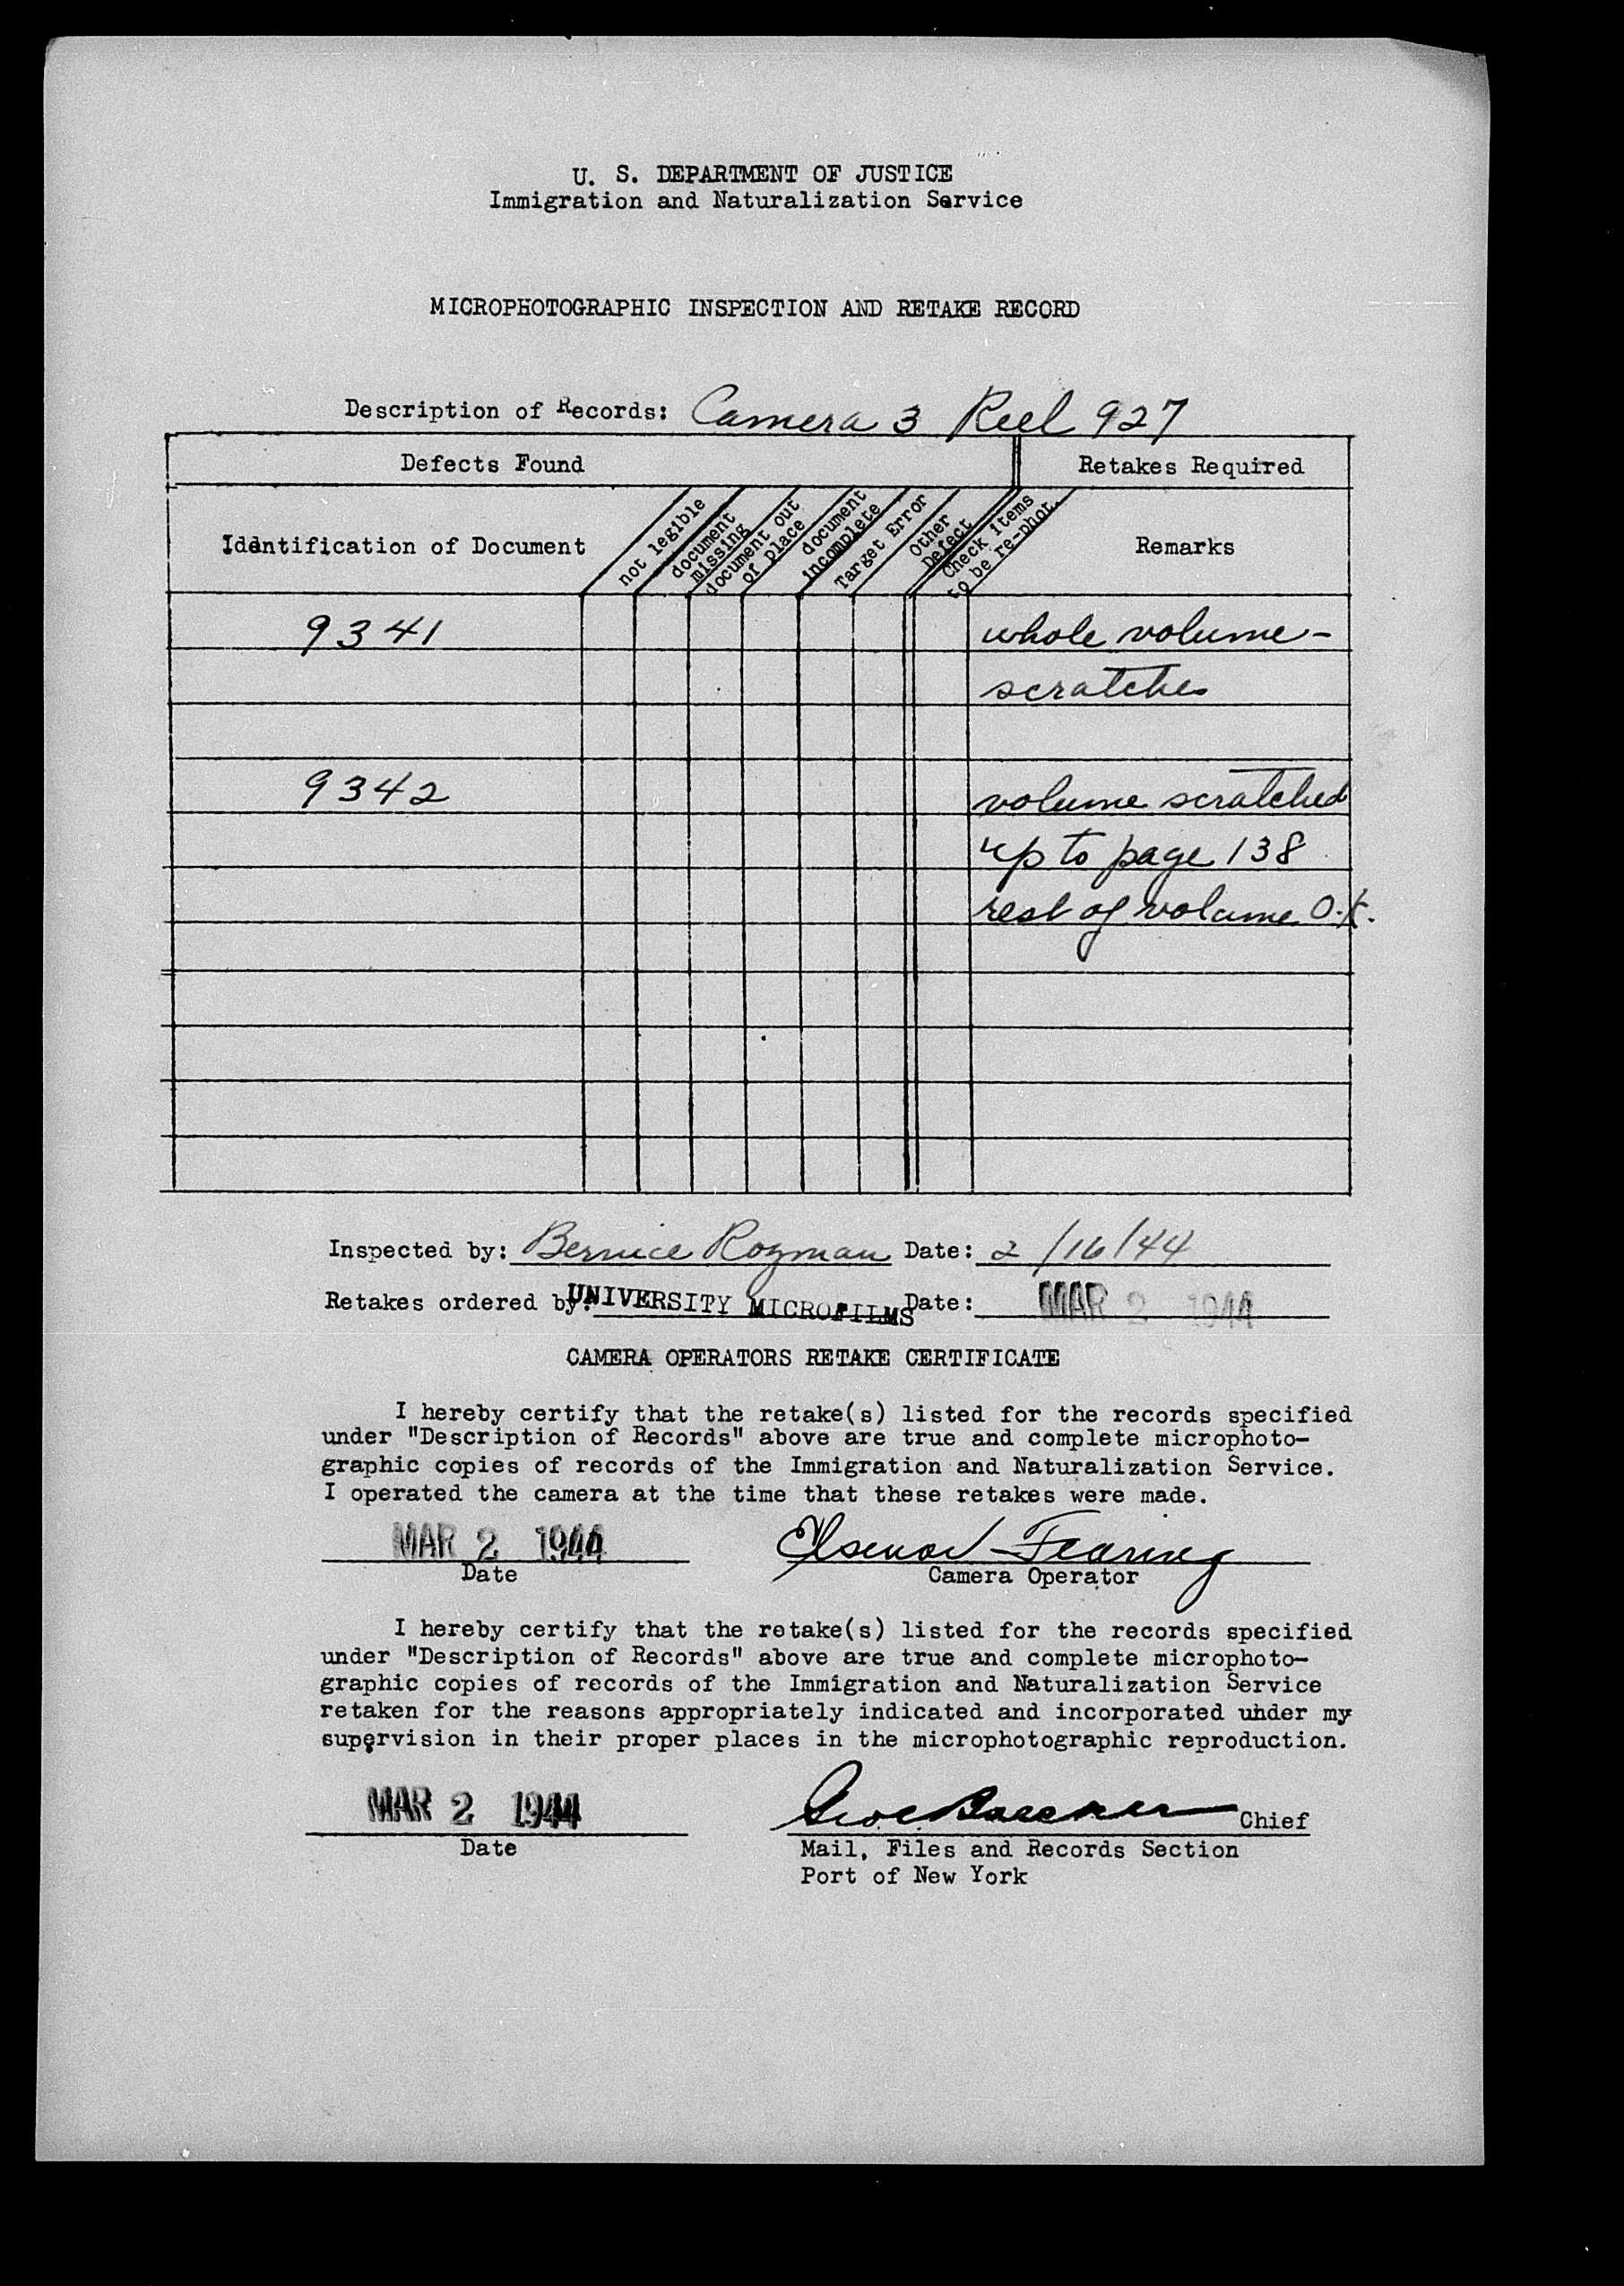 U. S. DEPARTMENT OF JUSTICE
Immigration and Naturalization Service
MICROPHOTOGRAPHIC INSPECTION AND RETAKE RECORD
Description of Records: Camera 3 Reel 927
Defects Found
Retakes Required
Identification of Document
not legible
document
missing
document out
of place
document
incomplete
Target Error
Other
Defect
Check items
to be re-phot.
Remarks
9341 whole volume-
scratches
9342 volume scratched
up to page 138
rest of volume O.K.
Inspected by: Bernice Rozman Date: 2/16/44
Retakes ordered by: UNIVERSITY MICROFILMS Date: MAR 2 1944
CAMERA OPERATORS RETAKE CERTIFICATE
I hereby certify that the retake(s) listed for the records specified
under "Description of Records" above are true and complete microphoto-
graphic copies of records of the Immigration and Naturalization Service.
I operated the camera at the time that these retakes were made.
MAR 2 1944 Fearing
Date Camera Operator
I hereby certify that the retake(s) listed for the records specified
under "Description of Records" above are true and complete microphoto-
graphic copies of records of the Immigration and Naturalization Service
retaken for the reasons appropriately indicated and incorporated under my
supervision in their proper places in the microphotographic reproduction.
MAR 2 1944 Chief
Date Mail, Files and Records Section
Port of New York